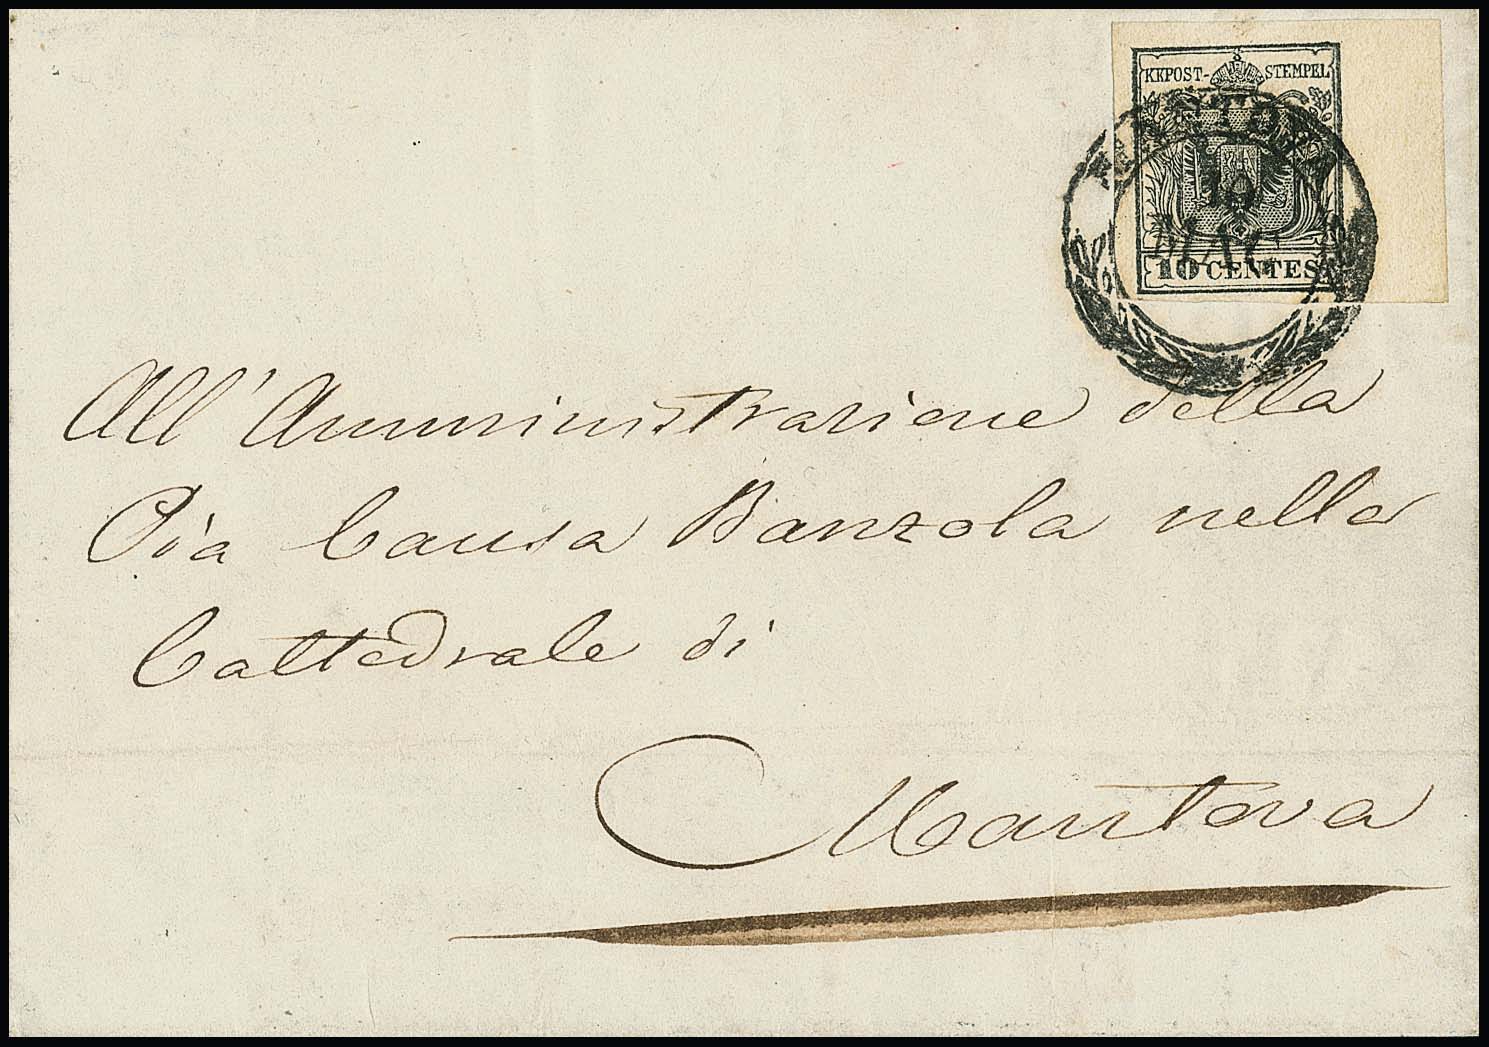 KKPOST- STEMPEL
10 CENTES.
19
MAG.
All'Amministrazione della
Pia Causa Banzola nella
Cattedrale di
Mantova